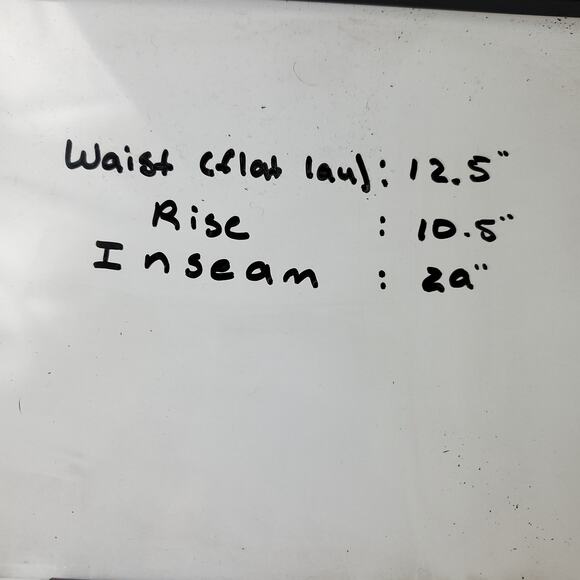 Waist (flat lay): 12.5"
Rise : 10.5"
Inseam : 29"